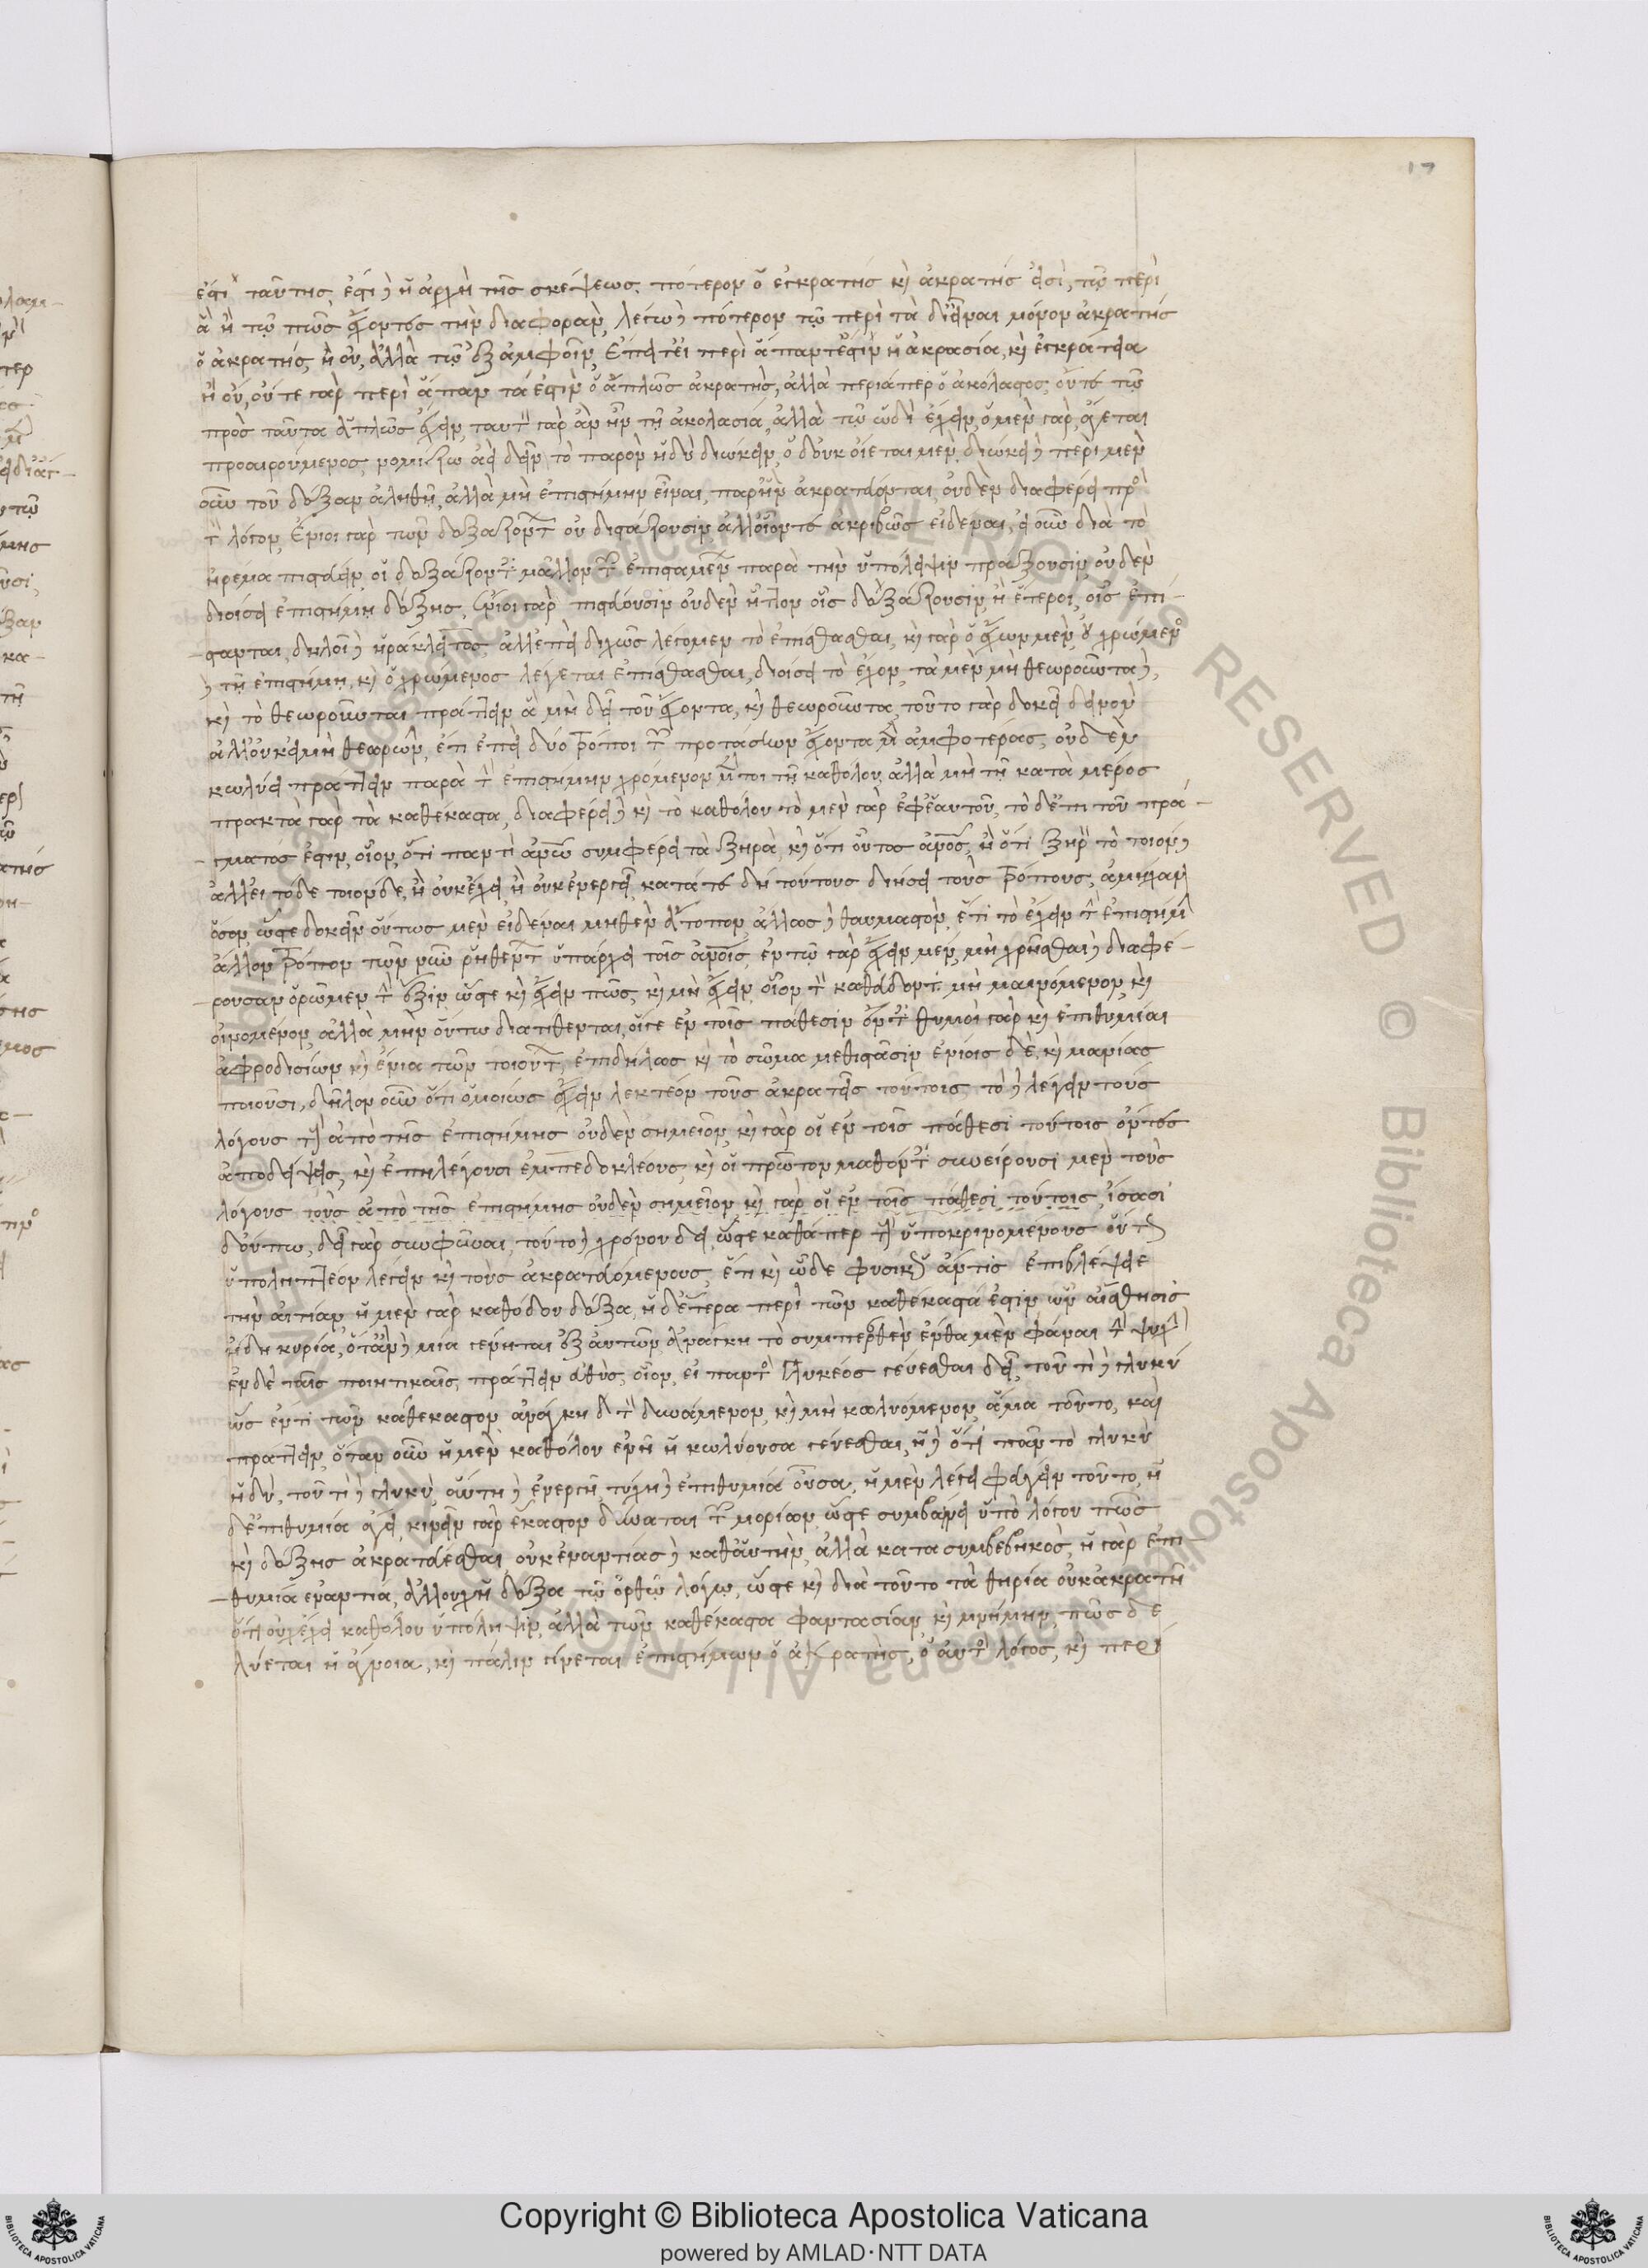 17
ἐστὶ ταύτης. ἔστι δ' ἡ ἀρχὴ τῆς σκέψεως, πότερον ὁ ἐγκρατὴς καὶ ἀκρατής εἰσὶ, τῷ περὶ
ἃ ἢ τῷ πῶς ἔχοντες τὴν διαφοράν, λέγω δὲ πότερον τῷ περὶ τὰ δι εἶναι μόνον ἀκρατὴς
ὁ ἀκρατής, ἢ οὔ, ἀλλὰ τῷ ἐξ ἀμφοῖν, ἔπειτ' εἰ περὶ ἅπαντ' ἐστὶν ἡ ἀκρασία, καὶ ἐγκράτεια
ἢ οὔ, οὔτε γὰρ περὶ ἅπαντά ἐστιν ὁ ἁπλῶς ἀκρατής, ἀλλὰ περὶ ἅπερ ὁ ἀκόλαστος, οὔτε τῷ
πρὸς ταῦτα ἁπλῶς ἔχειν, ταυτὸ γὰρ ἂν ἦν τῇ ἀκολασίᾳ, ἀλλὰ τῷ ὡδὶ ἔχειν, ὁ μὲν γὰρ, ἄγεται
προαιρούμενος, νομίζων ἀεὶ δεῖν τὸ παρὸν ἡδὺ διώκειν, ὁ δ' οὐκ οἴεται μὲν, διώκει δὲ. περὶ μὲν
οὖν τοῦ δόξαν ἀληθῆ, ἀλλὰ μὴ ἐπιστήμην εἶναι, παρ' ἣν ἀκρατεύονται, οὐδὲν διαφέρει πρὸς
τὸν λόγον, ἔνιοι γὰρ τῶν δοξαζόντων οὐ διστάζουσιν, ἀλλ' οἴονται ἀκριβῶς εἰδέναι, εἰ οὖν διὰ τὸ
ἠρέμα πιστεύειν, οἱ δοξάζοντες μᾶλλον τῶν ἐπισταμένων παρὰ τὴν ὑπόληψιν πράξουσιν, οὐδὲν
διοίσει ἐπιστήμη δόξης, ἔνιοι γὰρ πιστεύουσιν οὐδὲν ἧττον οἷς δοξάζουσιν, ἢ ἕτεροι, οἷς ἐπί-
στανται, δηλοῖ δ' ἡράκλειτος, ἀλλ' ἐπεὶ διχῶς λέγομεν τὸ ἐπίστασθαι, καὶ γὰρ ὁ ἔχων μὲν, οὐ χρώμενος
δὲ τῇ ἐπιστήμῃ, καὶ ὁ χρώμενος λέγεται ἐπίστασθαι, διοίσει τὸ ἔχον, τὰ μὲν μὴ θεωροῦντα δὲ,
καὶ τὸ θεωροῦντα πράττειν ἃ μὴ δεῖ τοῦ ἔχοντα, καὶ θεωροῦντα, τοῦτο γὰρ δοκεῖ δεινὸν
ἀλλ' οὐκ εἰ μὴ θεωρῶν, ἔτι ἐπεὶ δύο τρόποι τῶν προτάσεων ἔχοντα μὲν ἀμφοτέρας, οὐδὲν
κωλύει πράττειν παρὰ τὴν ἐπιστήμην χρόμενον μέντοι τῇ καθόλου, ἀλλὰ μὴ τῇ κατὰ μέρος
πρακτὰ γὰρ τὰ καθέκαστα, διαφέρει δὲ καὶ τὸ καθόλου, τὸ μὲν γὰρ ἐφ' ἑαυτοῦ, τὸ δ' ἐπὶ τοῦ πρά-
γματός ἐστιν, οἷον, ὅτι παντὶ ἀνθρώπῳ συμφέρει τὰ ξηρὰ, καὶ ὅτι οὗτος ἄνθρωπος, ἢ ὅτι ξηρὸν τὸ τοιόνδε
ἀλλ' εἰ τόδε τοιόνδε, ἢ οὐκ ἔχει, ἢ οὐκ ἐνεργεῖ, κατά τε δὴ τούτους διοίσει τοὺς τρόπους, ἀμήχανον
ὅσον, ὥστε δοκεῖν οὕτως μὲν εἰδέναι μηθὲν ἄτοπον, ἄλλως δὲ θαυμαστόν. ἔτι τὸ ἔχειν τὴν ἐπιστήμην
ἄλλον τρόπον τῶν νῦν ῥηθέντων ὑπάρχει τοῖς ἀνθρώποις, ἐν τῷ γὰρ ἔχειν μὲν, μὴ χρῆσθαι δὲ διαφέ-
ρουσαν ὁρῶμεν τὴν ἕξιν, ὥστε καὶ ἔχειν πῶς, καὶ μὴ ἔχειν, οἷον τὸν καθεύδοντα μὴ μαινόμενον, καὶ
οἰνομένον, ἀλλὰ μὴν οὕτω διατίθενται, οἵ γε ἐν τοῖς πάθεσιν ὄντες θυμοὶ γὰρ καὶ ἐπιθυμίαι
ἀφροδισίων καὶ ἔνια τῶν τοιούτων ἐπιδήλως καὶ τὸ σῶμα μεθιστᾶσιν ἐνίοις δὲ, καὶ μανίας
ποιοῦσι, δῆλον οὖν ὅτι ὁμοίως ἔχειν λεκτέον τοὺς ἀκρατεῖς τούτοις, τὸ δὲ λέγειν τοὺς
λόγους τοὺς ἀπὸ τῆς ἐπιστήμης οὐδὲν σημεῖον, καὶ γὰρ οἱ ἐν τοῖς πάθεσι τούτοις ὄντες
ἀποδείξεις, καὶ ἔπη λέγουσι ἐμπεδοκλέους, καὶ οἱ πρῶτον μαθόντες συνείρουσι μὲν τοὺς
λόγους τοὺς ἀπὸ τῆς ἐπιστήμης οὐδὲν σημεῖον, καὶ γὰρ οἱ ἐν τοῖς πάθεσι τούτοις, ἴσασι
δ' οὔπω, δεῖ γὰρ συμφῦναι, τούτου δὲ χρόνου δεῖ, ὥστε καθάπερ τοὺς ὑποκρινομένους οὕτως
ὑποληπτέον λέγειν καὶ τοὺς ἀκρατευομένους, ἔτι καὶ ὧδε φυσικῶς ἄν τις ἐπιβλέψειε
τὴν αἰτίαν, ἡ μὲν γὰρ καθόλου δόξα, ἡ δ' ἑτέρα περὶ τῶν καθέκαστά ἐστιν, ὧν αἴσθησις
ἤδη κυρία, ὅταν δὲ μία γένηται ἐξ αὐτῶν, ἀνάγκη τὸ συμπερανθὲν ἔνθα μὲν φάναι τὴν ψυχὴν
ἐν δὲ ταῖς ποιητικαῖς, πράττειν εὐθὺς, οἷον, εἰ παντὸς γλυκέος γεύεσθαι δεῖ, τουτὶ δὲ γλυκύ
ὡς ἕν τι τῶν καθέκαστον, ἀνάγκη δὲ τὸν δυνάμενον, καὶ μὴ κωλυόμενον, ἅμα τοῦτο, καὶ
πράττειν, ὅταν οὖν ἡ μὲν καθόλου ἐνῇ ἡ κωλύουσα γεύεσθαι, ἡ δὲ ὅτι πᾶν τὸ γλυκὺ
ἡδὺ, τουτὶ δὲ γλυκὺ, αὕτη δὲ ἐνεργῇ, τύχῃ δὲ ἐπιθυμία οὖσα, ἡ μὲν λέγει φεύγειν τοῦτο, ἡ
δ' ἐπιθυμία ἄγει, κινεῖν γὰρ ἕκαστον δύναται τῶν μορίων, ὥστε συμβαίνει ὑπὸ λόγου πως
καὶ δόξης ἀκρατεύεσθαι, οὐκ ἐναντίας δὲ καθ' αὑτὴν, ἀλλὰ κατὰ συμβεβηκὸς, ἡ γὰρ ἐπι-
θυμία ἐναντία, ἀλλ' οὐχ ἡ δόξα τῷ ὀρθῷ λόγῳ, ὥστε καὶ διὰ τοῦτο τὰ θηρία οὐκ ἀκρατῆ
ὅτι οὐκ ἔχει καθόλου ὑπόληψιν, ἀλλὰ τῶν καθέκαστα φαντασίαν, καὶ μνήμην, πῶς δὲ
λύεται ἡ ἄγνοια, καὶ πάλιν γίνεται ἐπιστήμων ὁ ἀκρατὴς, ὁ αὐτὸς λόγος, καὶ περὶ
Copyright © Biblioteca Apostolica Vaticana
powered by AMLAD·NTT DATA